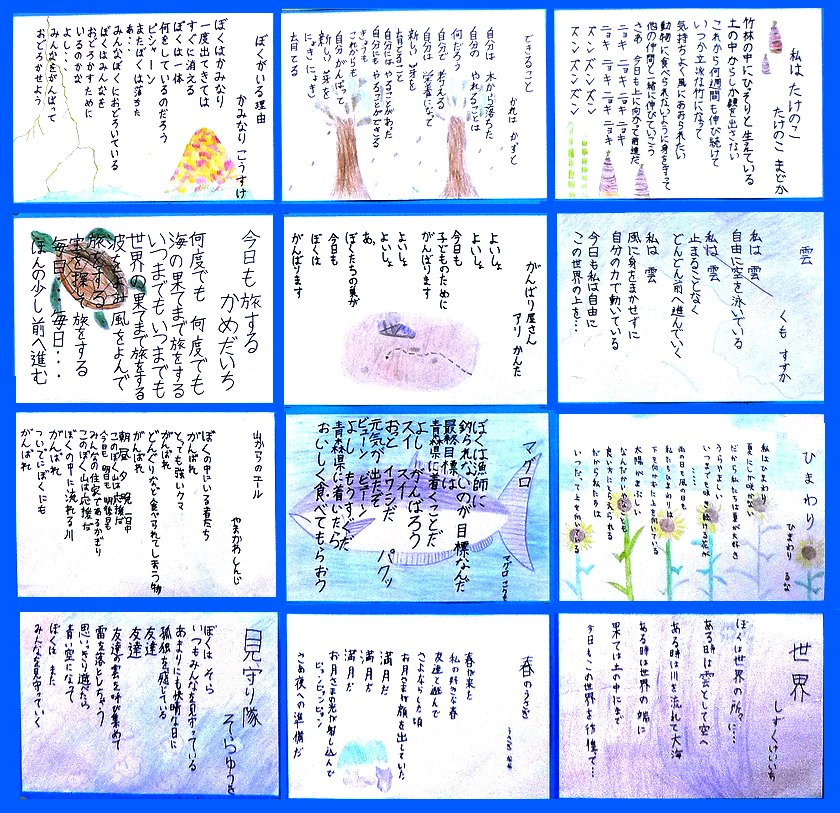 私は たけのこ
たけのこ まどか
竹林の中にひっそりと生えている
土の中から少し顔を出さない
これから何週間も伸び続けて
いつか立派な竹になって
気持ちよく風にあおられたい
動物に食べられないように身を守って
他の仲間と一緒に伸びていこう
さあ 今日も上に向かって前進だ
ニョキ ニョキ ニョキ ニョキ
ニョキ ニョキ ニョキ ニョキ
ズンズンズンズン
ズンズンズンズン
できること
かれは かずと
自分は 木から落ちた
自分の やれることは
何だろう
自分で 考える
自分は 栄養になって
新しい芽を
去月てること
自分にも やることがあった
自分には やることができる
これからも
自分が がんばって
新しい 芽を
にょき にょき
去月てる
ぼくがいる理由
かみなり こうすけ
ぼくはかみなり
一度出てきては
すぐに消える
ぼくは一体
何をしているのだろう
ピシャーン
またぼくは落ちた
あ…
みんなぼくにおどろいている
ぼくはみんなを
おどろかすために
いるのかな
よし…
みんなをがんばって
おどろかせよう
雲
くも すずか
私は 雲
自由に空を泳いでいる
私は 雲
止まることなく
どんどん前へ進んでいく
私は 雲
風に身をまかせずに
自分の力で動いている
今日も私は自由に
この世界の上を…
がんばり屋さん
アリ かんた
よいしょ
よいしょ
今日も
子どものために
がんばります
よいしょ
よいしょ
あ、
ぼくたちの巣が
今日も
ぼくは
がんばります
今日も 旅する
かめだいち
何度でも 何度でも
海の果てまで旅をする
いつまでも いつまでも
世界の果てまで旅をする
波をよみ風をよんで
旅をする
宝を探して旅をする
毎日…毎日…
ほんの少し前へ進む
ひまわり
ひまわり るな
私はひまわり
夏にしか咲かない
だから私たちは夏が大好き
いつまでも咲き続ける花が
うらやましい
……
雨の日も風の日も
私たちひまわりは
下を向かずに上を向いている
太陽がまぶしい
なんだかいやなことも
良い方にとらえられる
だから私たちは
いつだって上を向いている
マグロ
ぼくは漁師に
釣られないのが目標なんだ
最終目標は
青森県に着くことだ
よし がんばろう
スイ スイ
おっと イワシだ パクッ
元気が出たぞ
ビューン ビューン
よしもうすぐだ
青森県に着いたら
おいしく食べてもらおう
山からのエール
やまかわしんじ
ぼくの中にいる者たち
がんばれ
とっても強いクマ
がんばれ
どんぐりなど食べられてしまう物
がんばれ
朝昼 夕 晩 一日中
このぼく山は応援だ
今日も明日も明後日も
みんなの住家であるかぎり
このぼく山は応援だ
ぼくの中に流れる川
がんばれ
ついでにぼくにも
がんばれ
世界
しずくけいいち
ぼくは世界の所々に…
ある時は雲として空へ
ある時は川を流れて大海
ある時は世界の端に
果ては土の中にまで
今日もこの世界を彷徨って…
春のうさぎ
春が来た
私の好きな春
友達と遊んで
さよならした頃
お月さまが顔を出していた
満月だ
満月だ
満月だ
お月さまの光が射し込んで
ピョンピョンピョン
さあ夜への準備だ
見守り隊
そらゆうき
ぼくは そら
いつもみんなを見守っている
あまりにも快晴な日に
孤独を感じている
友達
友達
友達の雲を呼び集めて
雷を落としちゃう
思いっきり遊べたら
青い空になって
ぼくは また
みんなを見守っていく